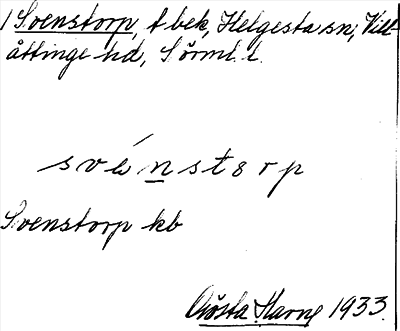 1 Svenstorp, t bek, Helgesta sn, Vill-
åttinge hd, Sörml. l.
svénstorp
Svenstorp kb
Gösta Harne 1933.